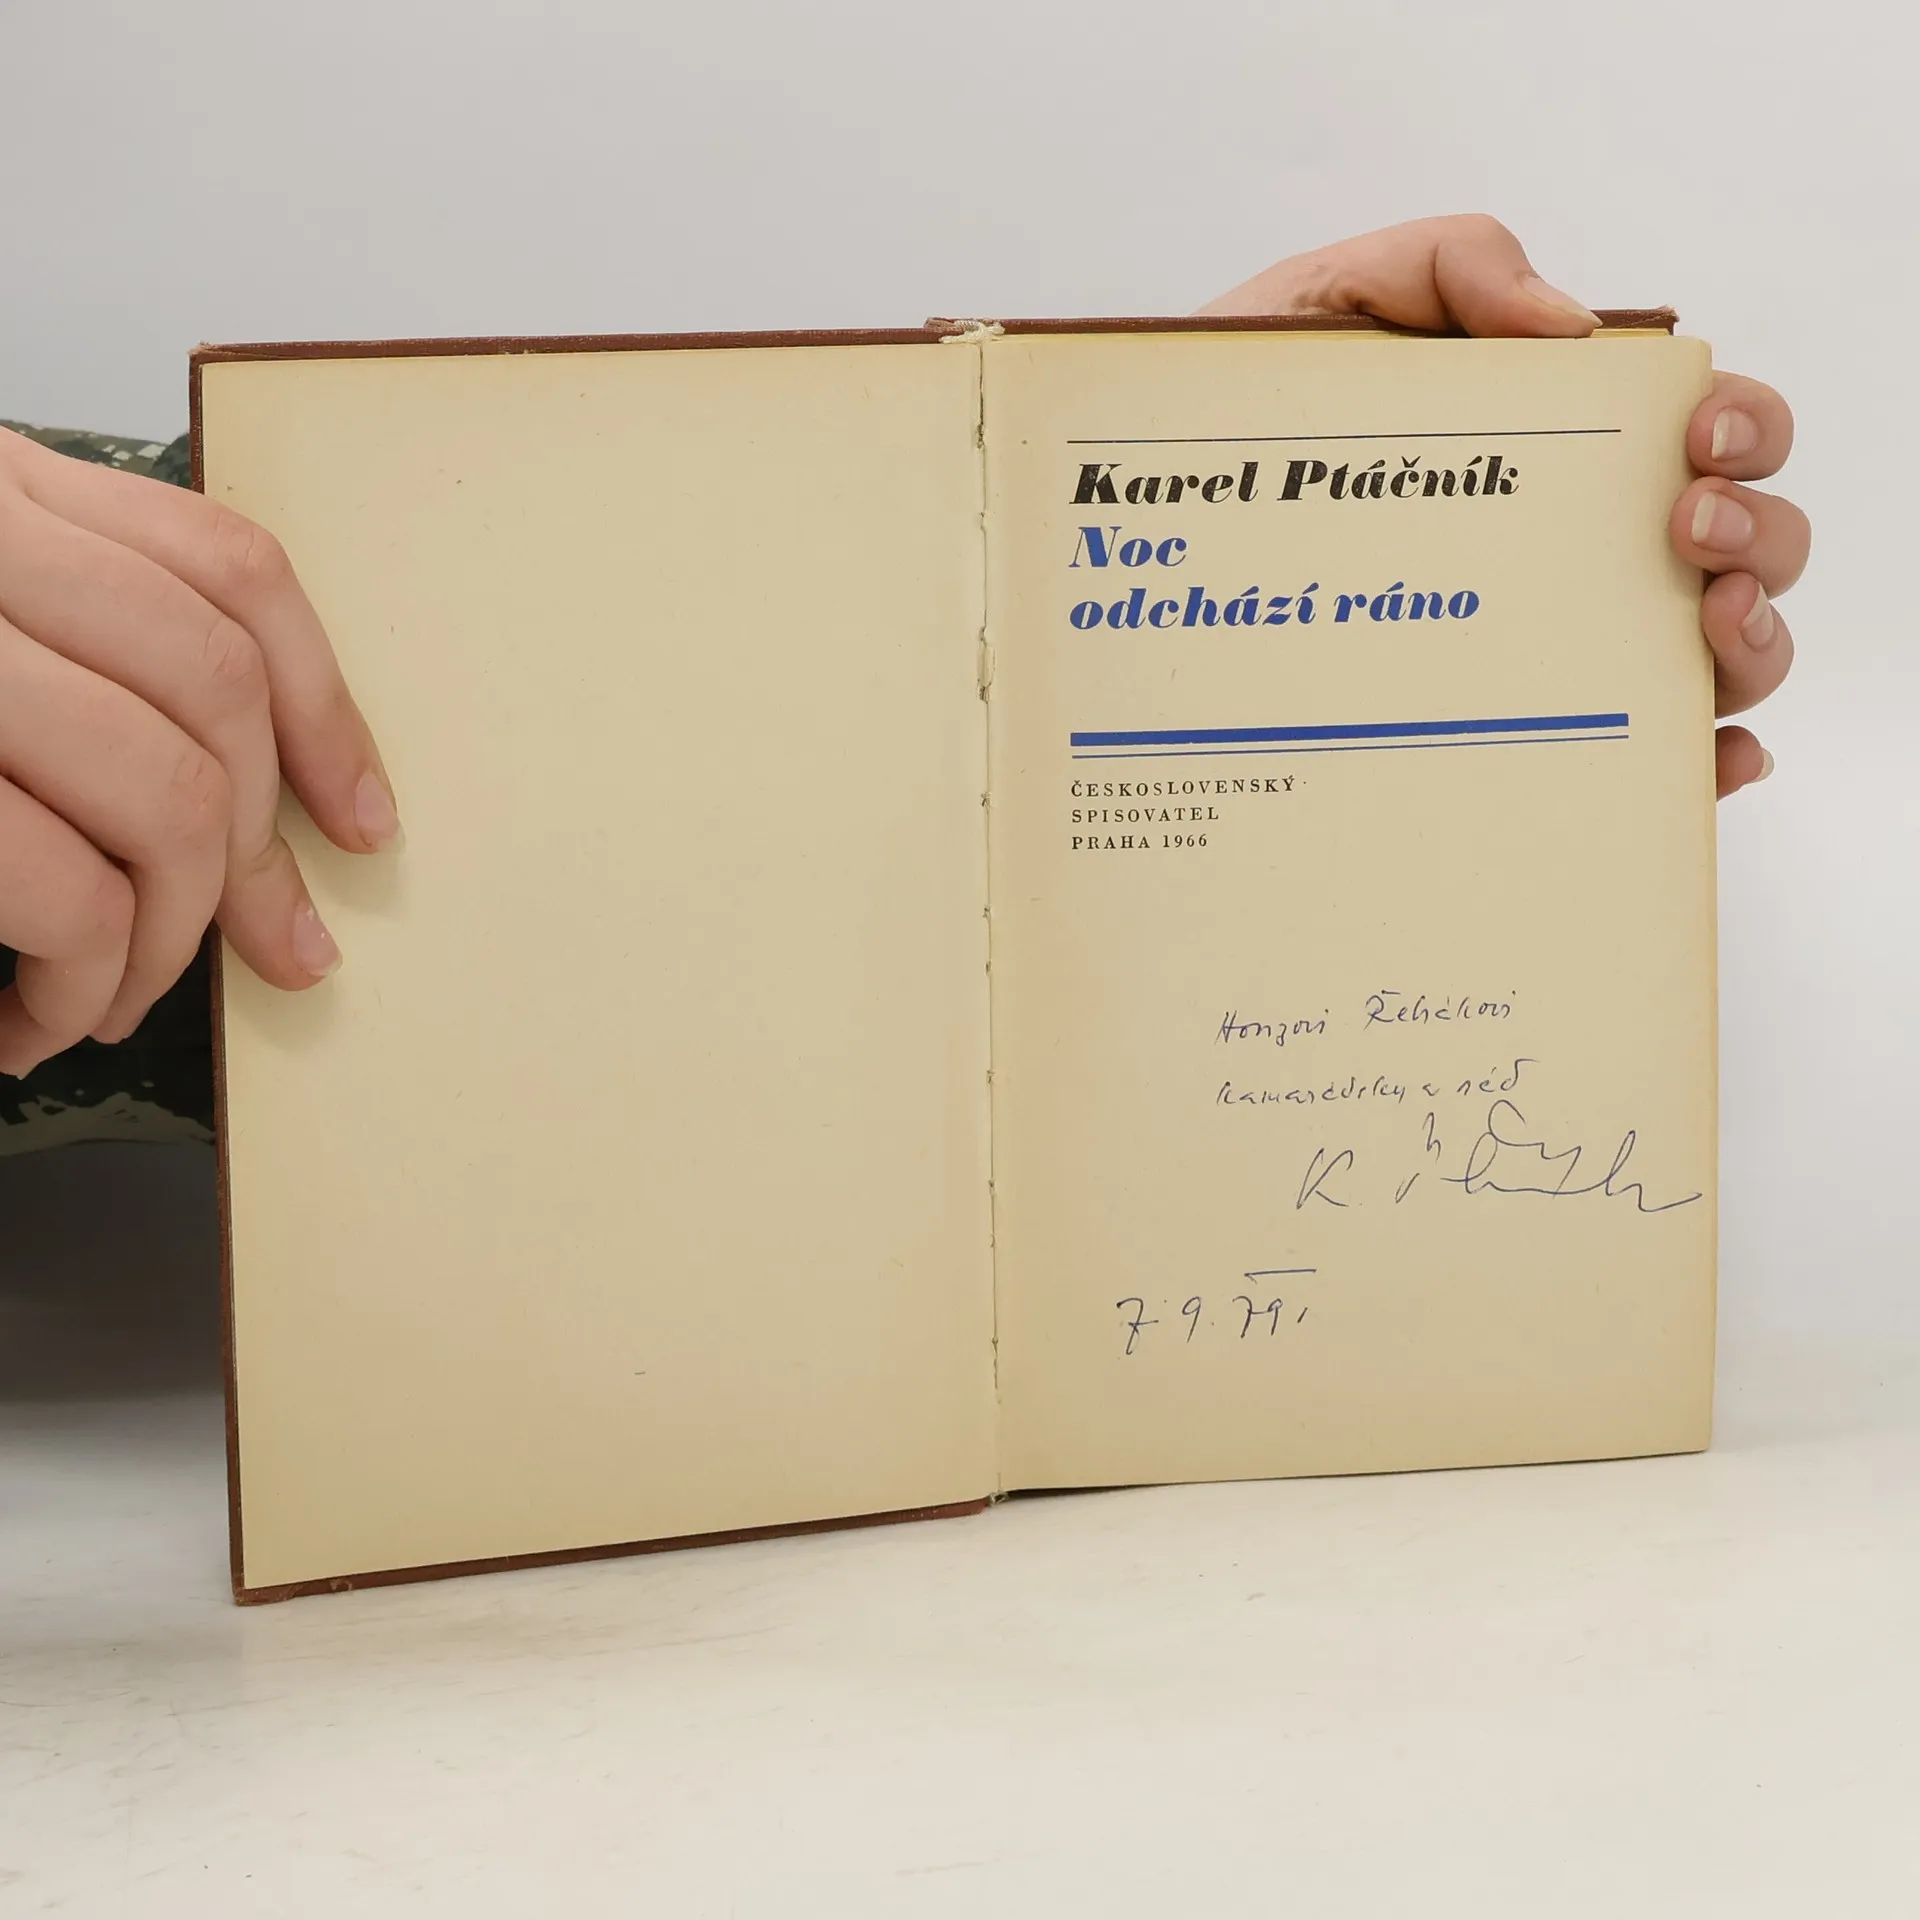 Karel Ptáčník
Noc
odchází ráno
ČESKOSLOVENSKÝ
SPISOVATEL
PRAHA 1966
Honzovi Řehákovi
kamarádsky a rád
K.
7. 9. 79.